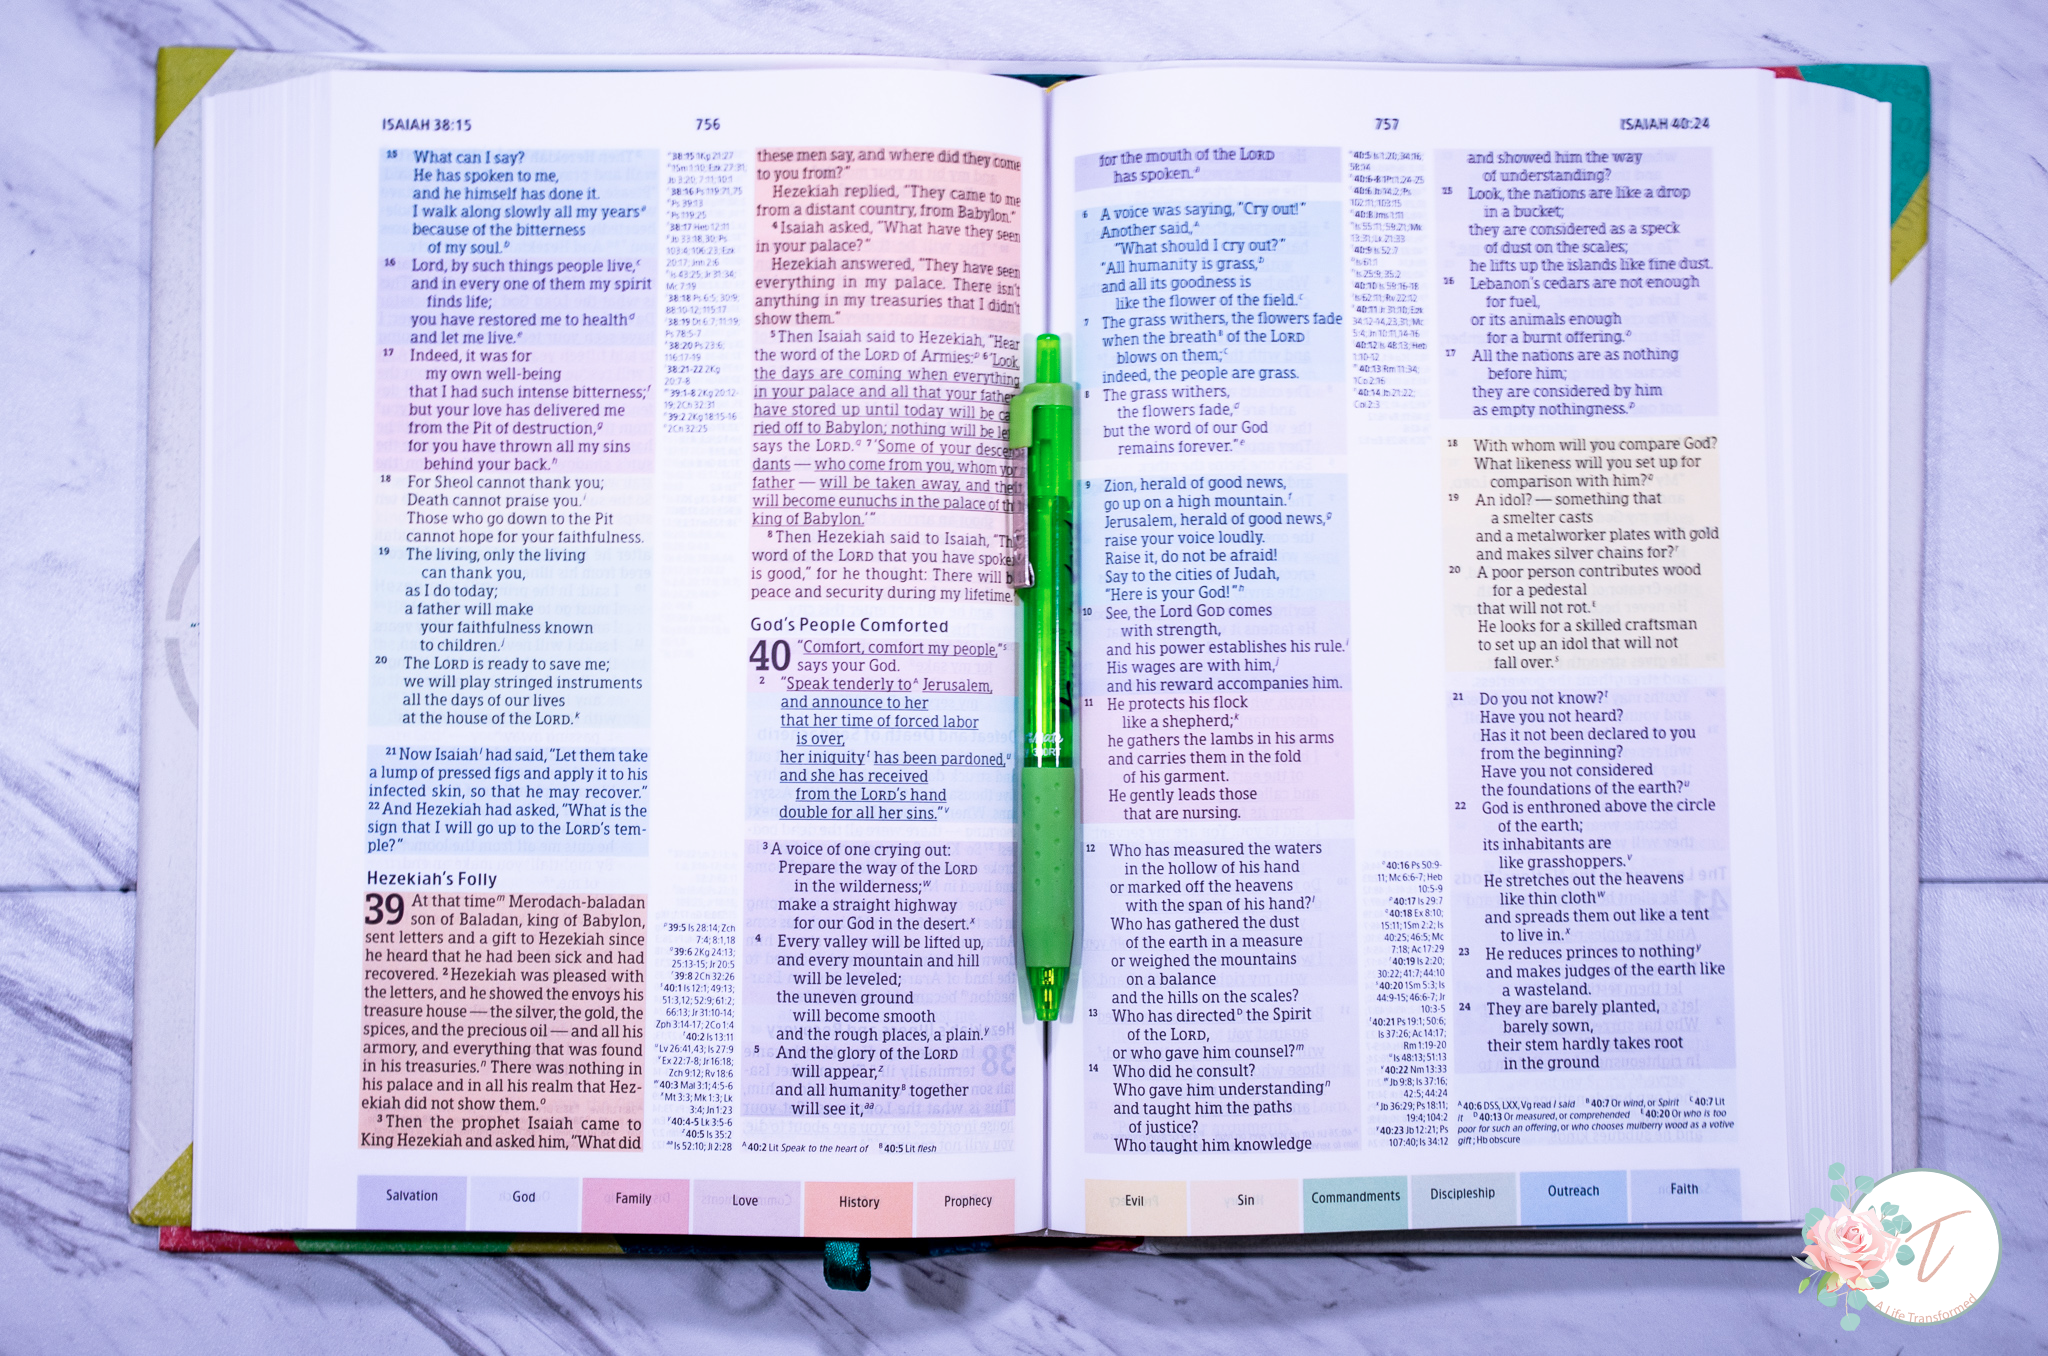 ISAIAH 38:15
756
15 What can I say?
He has spoken to me,
and he himself has done it.
I walk along slowly all my years
because of the bitterness
of my soul.
16 Lord, by such things people live,
and in every one of them my spirit
finds life;
you have restored me to health
and let me live.
17 Indeed, it was for
my own well-being
that I had such intense bitterness;
but your love has delivered me
from the Pit of destruction,
for you have thrown all my sins
behind your back.
18 For Sheol cannot thank you;
Death cannot praise you.
Those who go down to the Pit
cannot hope for your faithfulness.
19 The living, only the living
can thank you,
as I do today;
a father will make
your faithfulness known
to children.
20 The LORD is ready to save me;
we will play stringed instruments
all the days of our lives
at the house of the LORD.
21 Now Isaiah had said, “Let them take
a lump of pressed figs and apply it to his
infected skin, so that he may recover.”
22 And Hezekiah had asked, “What is the
sign that I will go up to the LORD’s tem-
ple?”
Hezekiah’s Folly
39 At that time Merodach-baladan
son of Baladan, king of Babylon,
sent letters and a gift to Hezekiah since
he heard that he had been sick and had
recovered. 2 Hezekiah was pleased with
the letters, and he showed the envoys his
treasure house — the silver, the gold, the
spices, and the precious oil — and all his
armory, and everything that was found
in his treasuries. There was nothing in
his palace and in all his realm that Hez-
ekiah did not show them.
3 Then the prophet Isaiah came to
King Hezekiah and asked him, “What did
39:5 Is 28:14; Zch
7:4; 8:1,18
39:6 2Kg 24:13;
25:13-15; Jr 20:5
39:8 2Ch 32:26
40:1 Is 12:1; 49:13;
51:3,12; 52:9; 61:2;
66:13; Jr 31:10-14;
Zph 3:14-17; 2Co 1:4
40:2 Is 13:11
Lv 26:41,43; Is 27:9
Ex 22:7-8; Jr 16:18;
Zch 9:12; Rv 18:6
40:3 Mal 3:1; 4:5-6
Mt 3:3; Mk 1:3; Lk
3:4; Jn 1:23
40:4-5 Lk 3:5-6
40:5 Is 35:2
Is 52:10; Jl 2:28
these men say, and where did they come
to you from?”
Hezekiah replied, “They came to me
from a distant country, from Babylon.”
4 Isaiah asked, “What have they seen
in your palace?”
Hezekiah answered, “They have seen
everything in my palace. There isn’t
anything in my treasuries that I didn’t
show them.”
5 Then Isaiah said to Hezekiah, “Hear
the word of the LORD of Armies: 6 ‘Look,
the days are coming when everything
in your palace and all that your father
have stored up until today will be ca
ried off to Babylon; nothing will be le
says the LORD. 7 ‘Some of your descen
dants — who come from you, whom you
father — will be taken away, and the
will become eunuchs in the palace of th
king of Babylon.’”
8 Then Hezekiah said to Isaiah, “Th
word of the LORD that you have spoke
is good,” for he thought: There will b
peace and security during my lifetime.
God’s People Comforted
40 “Comfort, comfort my people,”
says your God.
2 “Speak tenderly to A Jerusalem,
and announce to her
that her time of forced labor
is over,
her iniquity has been pardoned,
and she has received
from the LORD’s hand
double for all her sins.”
3 A voice of one crying out:
Prepare the way of the LORD
in the wilderness;
make a straight highway
for our God in the desert.
4 Every valley will be lifted up,
and every mountain and hill
will be leveled;
the uneven ground
will become smooth
and the rough places, a plain.
5 And the glory of the LORD
will appear,
and all humanity B together
will see it,
A 40:2 Lit Speak to the heart of B 40:5 Lit flesh
Salvation
God
Family
Love
History
Prophecy
757
ISAIAH 40:24
for the mouth of the LORD
has spoken.
6 A voice was saying, “Cry out!”
Another said, A
“What should I cry out?”
“All humanity is grass,
and all its goodness is
like the flower of the field.
7 The grass withers, the flowers fade
when the breath B of the LORD
blows on them;
indeed, the people are grass.
8 The grass withers,
the flowers fade,
but the word of our God
remains forever.”
9 Zion, herald of good news,
go up on a high mountain.
Jerusalem, herald of good news,
raise your voice loudly.
Raise it, do not be afraid!
Say to the cities of Judah,
“Here is your God!”
10 See, the Lord GOD comes
with strength,
and his power establishes his rule.
His wages are with him,
and his reward accompanies him.
11 He protects his flock
like a shepherd;
he gathers the lambs in his arms
and carries them in the fold
of his garment.
He gently leads those
that are nursing.
12 Who has measured the waters
in the hollow of his hand
or marked off the heavens
with the span of his hand?
Who has gathered the dust
of the earth in a measure
or weighed the mountains
on a balance
and the hills on the scales?
13 Who has directed D the Spirit
of the LORD,
or who gave him counsel?
14 Who did he consult?
Who gave him understanding
and taught him the paths
of justice?
Who taught him knowledge
40:16 Ps 50:9-
11; Mc 6:6-7; Heb
10:5-9
40:17 Is 29:7
40:18 Ex 8:10;
15:11; 1Sm 2:2; Is
40:25; 46:5; Mc
7:18; Ac 17:29
40:19 Is 2:20;
30:22; 41:7; 44:10
40:20 1Sm 5:3; Is
44:9-15; 46:6-7; Jr
10:3-5
40:21 Ps 19:1; 50:6;
Is 37:26; Ac 14:17;
Rm 1:19-20
Is 48:13; 51:13
40:22 Nm 13:33
Jb 9:8; Is 37:16;
42:5; 44:24
Jb 36:29; Ps 18:11;
19:4; 104:2
40:23 Jb 12:21; Ps
107:40; Is 34:12
and showed him the way
of understanding?
15 Look, the nations are like a drop
in a bucket;
they are considered as a speck
of dust on the scales;
he lifts up the islands like fine dust.
16 Lebanon’s cedars are not enough
for fuel,
or its animals enough
for a burnt offering.
17 All the nations are as nothing
before him;
they are considered by him
as empty nothingness.
18 With whom will you compare God?
What likeness will you set up for
comparison with him?
19 An idol? — something that
a smelter casts
and a metalworker plates with gold
and makes silver chains for?
20 A poor person contributes wood
for a pedestal
that will not rot.
He looks for a skilled craftsman
to set up an idol that will not
fall over.
21 Do you not know?
Have you not heard?
Has it not been declared to you
from the beginning?
Have you not considered
the foundations of the earth?
22 God is enthroned above the circle
of the earth;
its inhabitants are
like grasshoppers.
He stretches out the heavens
like thin cloth
and spreads them out like a tent
to live in.
23 He reduces princes to nothing
and makes judges of the earth like
a wasteland.
24 They are barely planted,
barely sown,
their stem hardly takes root
in the ground
A 40:6 DSS, LXX, Vg read I said B 40:7 Or wind, or Spirit C 40:7 Lit
it D 40:13 Or measured, or comprehended E 40:20 Or who is too
poor for such an offering, or who chooses mulberry wood as a votive
gift; Hb obscure
Evil
Sin
Commandments
Discipleship
Outreach
Faith
A Life Transformed